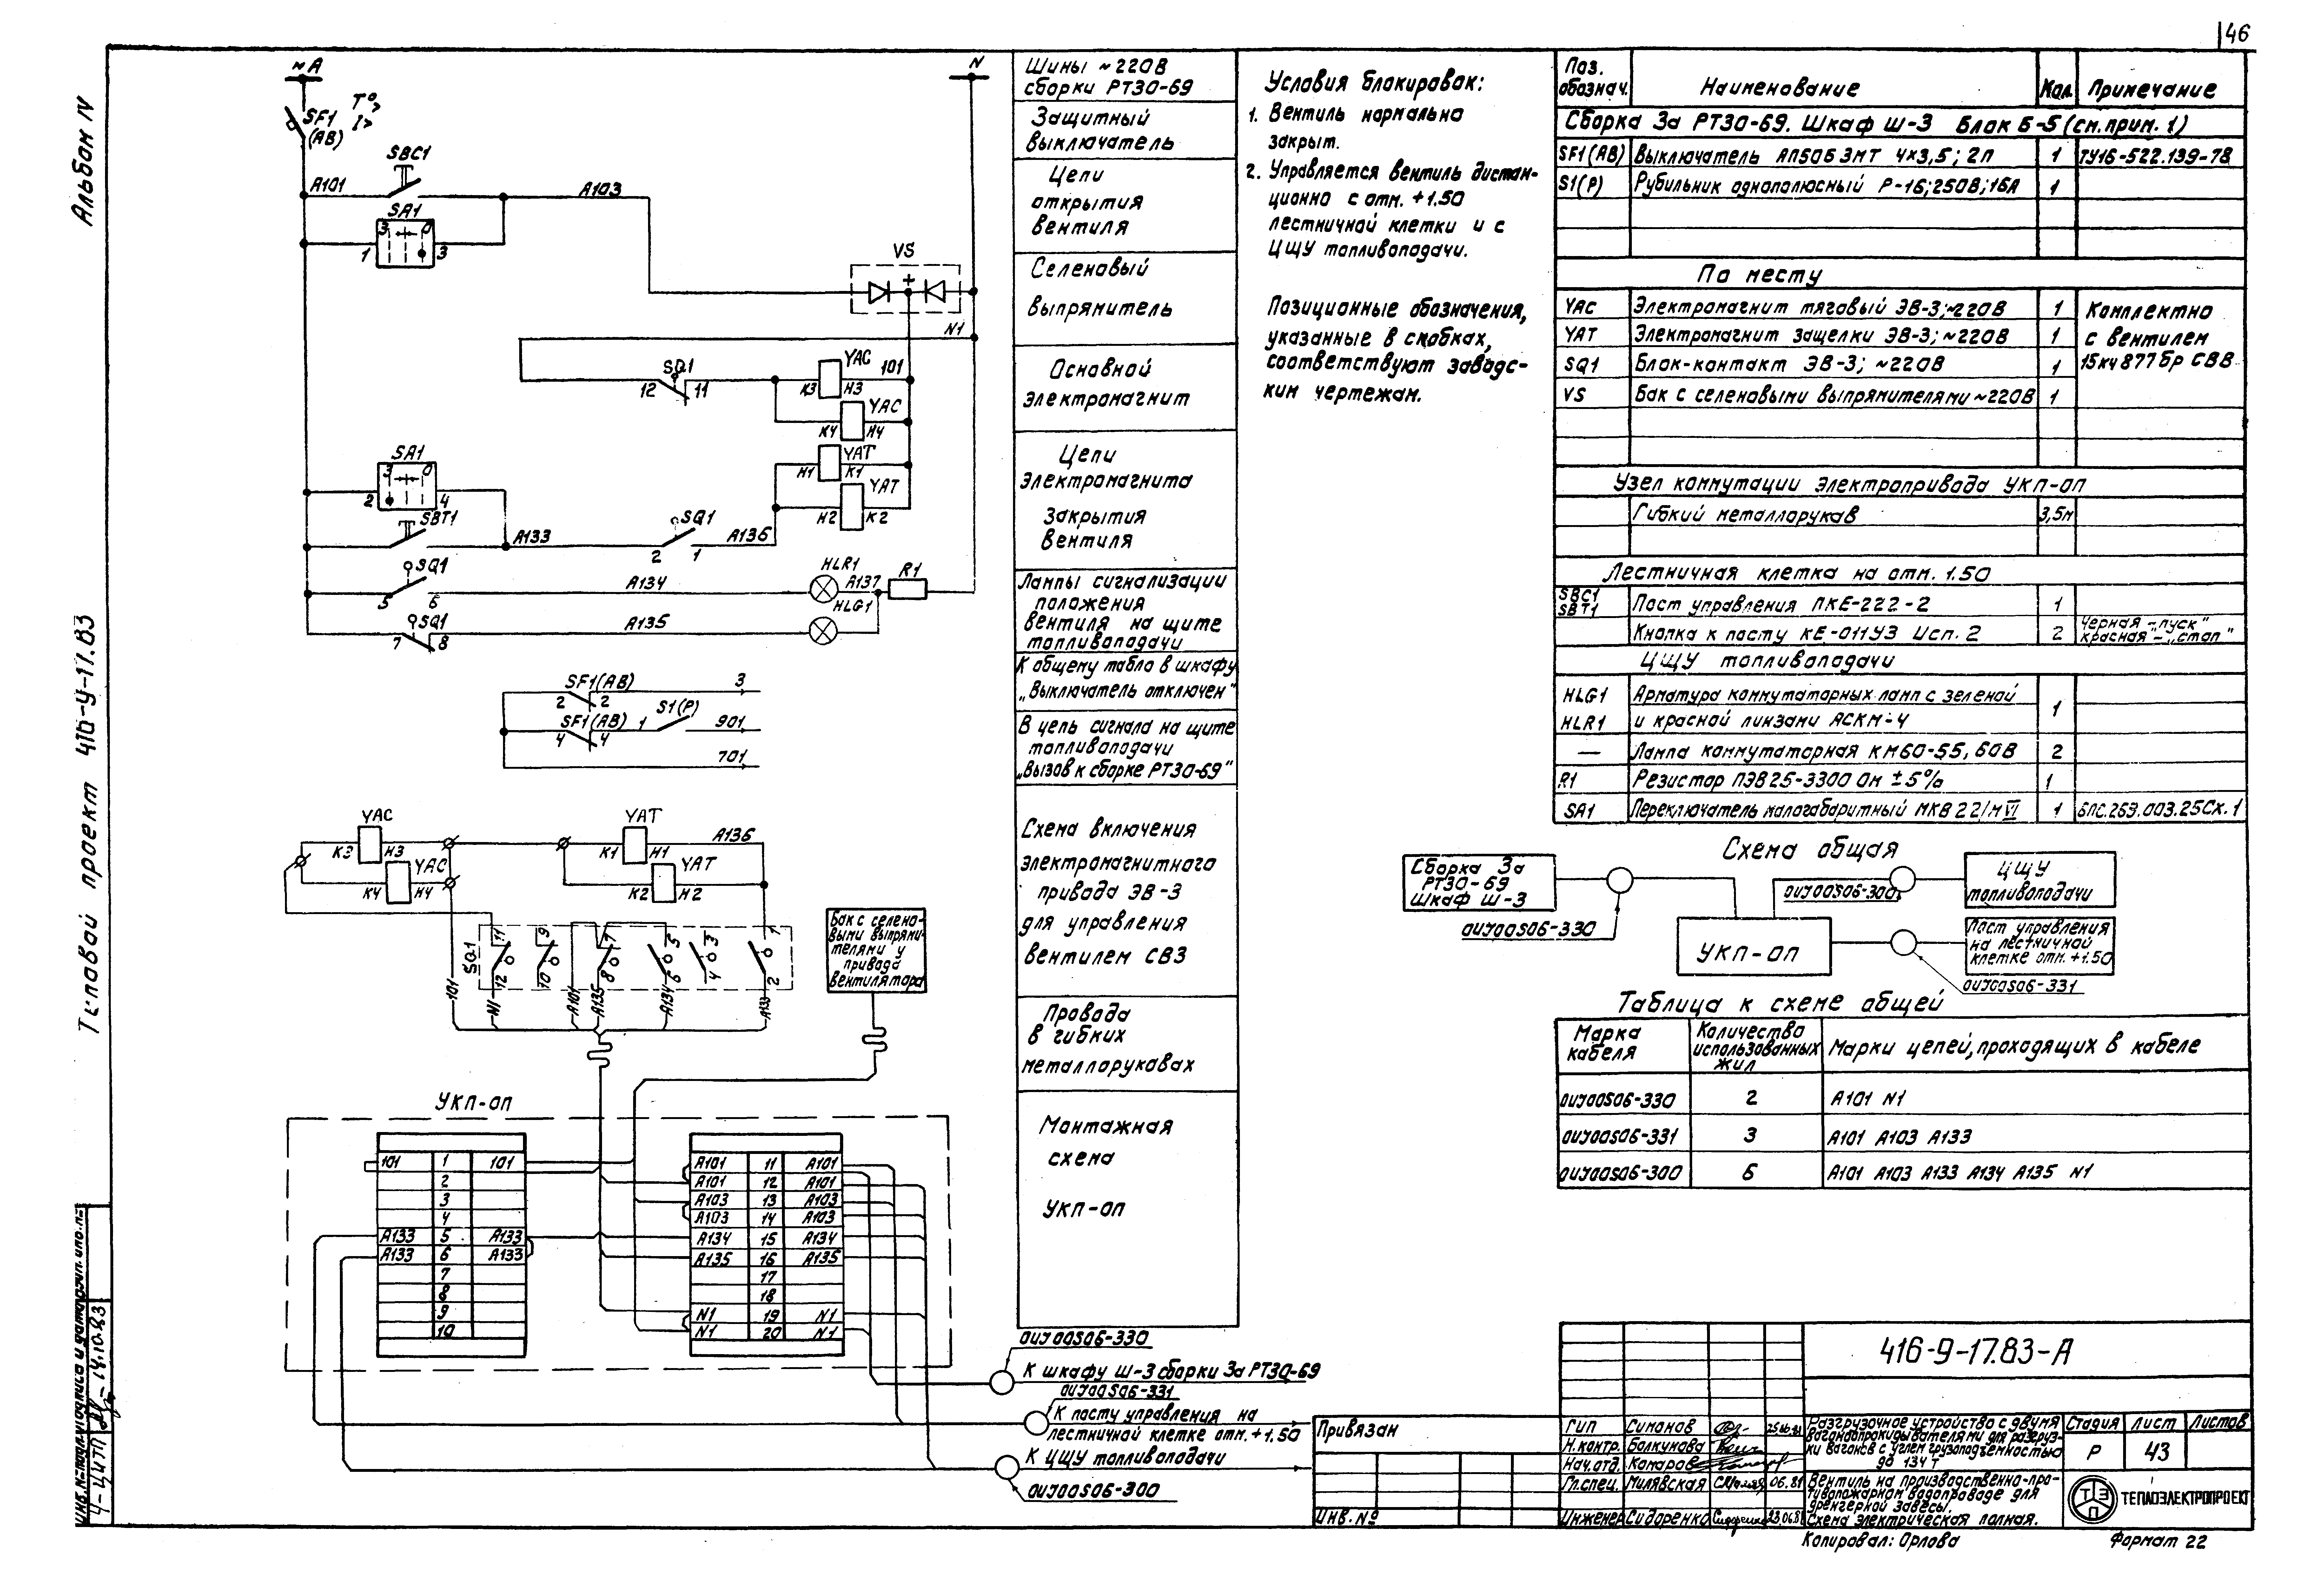 46
Альбом IV
Типовой проект 416-9-17.83
~А
N
SF1
(АВ)
T°>
I>
SBC1
А101
А103
SA1
3 0
1 3
VS
+
N1
SQ1
12 11
YAC
101
К3 Н3
YAC
К4 Н4
YAT
Н1 К1
YAT
Н2 К2
SA1
3 0
2 4
SBT1
А133
SQ1
2 1
А136
SQ1
5 6
А134
HLR1
А137
R1
HLG1
SQ1
7 8
А135
SF1(АВ)
2 2
3
SF1(АВ)
4 4
1
S1(Р)
901
701
YAC
К3 Н3
YAC
К4 Н4
YAT
К1 Н1
А136
YAT
К2 Н2
SQ1
11 9 7 5 3 1
12 10 8 6 4 2
101 N1 А101 А135 А134 А133
Бак с селено-
выми выпрями-
телями у
привода
вентилятора
УКП-оп
101 1 101
2
3
4
А133 5 А133
А133 6 А133
7
8
9
10
А101 11 А101
А101 12 А101
А103 13 А103
А103 14 А103
А134 15 А134
А135 16 А135
17
18
N1 19 N1
N1 20 N1
0UJ00S06-330
К шкафу Ш-3 сборки 3а РТ30-69
0UJ00S06-331
К посту управления на
лестничной клетке отм. +1.50
К ЦЩУ топливоподачи
0UJ00S06-300
Шины ~220В
сборки РТ30-69
Защитный
выключатель
Цепи
открытия
вентиля
Селеновый
выпрямитель
Основной
электромагнит
Цепи
электромагнита
закрытия
вентиля
Лампы сигнализации
положения
вентиля на щите
топливоподачи
К общему табло в шкафу
„Выключатель отключен"
В цепь сигнала на щите
топливоподачи
„Вызов к сборке РТ30-69"
Схема включения
электромагнитного
привода ЭВ-3
для управления
вентилем СВЗ
Провода
в гибких
металлорукавах
Монтажная
схема
УКП-оп
Условия блокировок:
1. Вентиль нормально
закрыт.
2. Управляется вентиль дистан-
ционно с отм. +1.50
лестничной клетки и с
ЦЩУ топливоподачи.
Позиционные обозначения,
указанные в скобках,
соответствуют заводс-
ким чертежам.
Поз. обознач. Наименование Кол. Примечание
Сборка 3а РТ30-69. Шкаф Ш-3 Блок Б-5 (см. прим. 1)
SF1(АВ) Выключатель АП50Б 3МТ 4х3,5; 2П 1 ТУ16-522.139-78
S1(Р) Рубильник однополюсный Р-16; 250В; 16А 1
По месту
YAC Электромагнит тяговый ЭВ-3; ~220В 1 Комплектно
YAT Электромагнит защелки ЭВ-3; ~220В 1 с вентилем
SQ1 Блок-контакт ЭВ-3; ~220В 1 15кч877бр СВВ
VS Бак с селеновыми выпрямителями ~220В 1
Узел коммутации электропривода УКП-оп
Гибкий металлорукав 3,5м
Лестничная клетка на отм. 1.50
SBC1
SBT1 Пост управления ПКЕ-222-2 1
Кнопка к посту КЕ-011У3 Исп. 2 2 Черная-„пуск"
красная-„стоп"
ЦЩУ топливоподачи
HLG1 Арматура коммутаторных ламп с зеленой
HLR1 и красной линзами АСКМ-4 1
— Лампа коммутаторная КМ60-55, 60В 2
R1 Резистор ПЭВ25-3300 Ом ±5% 1
SA1 Переключатель малогабаритный МКВ 22/М VI 1 БПС.263.003.25Сх.1
Схема общая
Сборка 3а
РТ30-69
Шкаф Ш-3
0UJ00S06-330
УКП-оп
0UJ00S06-300
ЦЩУ
топливоподачи
Пост управления
на лестничной
клетке отм. +1.50
0UJ00S06-331
Таблица к схеме общей
Марка кабеля Количество использованных жил Марки цепей, проходящих в кабеле
0UJ00S06-330 2 А101 N1
0UJ00S06-331 3 А101 А103 А133
0UJ00S06-300 6 А101 А103 А133 А134 А135 N1
416-9-17.83-А
Привязан
Инв.№
ГИП Симонов
Н.контр. Болкунова
Нач.отд. Комаров
Гл.спец. Милявская 06.81
Инженер Сидоренко 23.06.81
Разгрузочное устройство с двумя
вагоноопрокидывателями для разгруз-
ки вагонов с углем грузоподъемностью
до 134 т
Стадия Лист Листов
Р 43
Вентиль на производственно-про-
тивопожарном водопроводе для
дренчерной завесы.
Схема электрическая полная.
ТЭП
ТЕПЛОЭЛЕКТРОПРОЕКТ
Копировал: Орлова
Формат 22